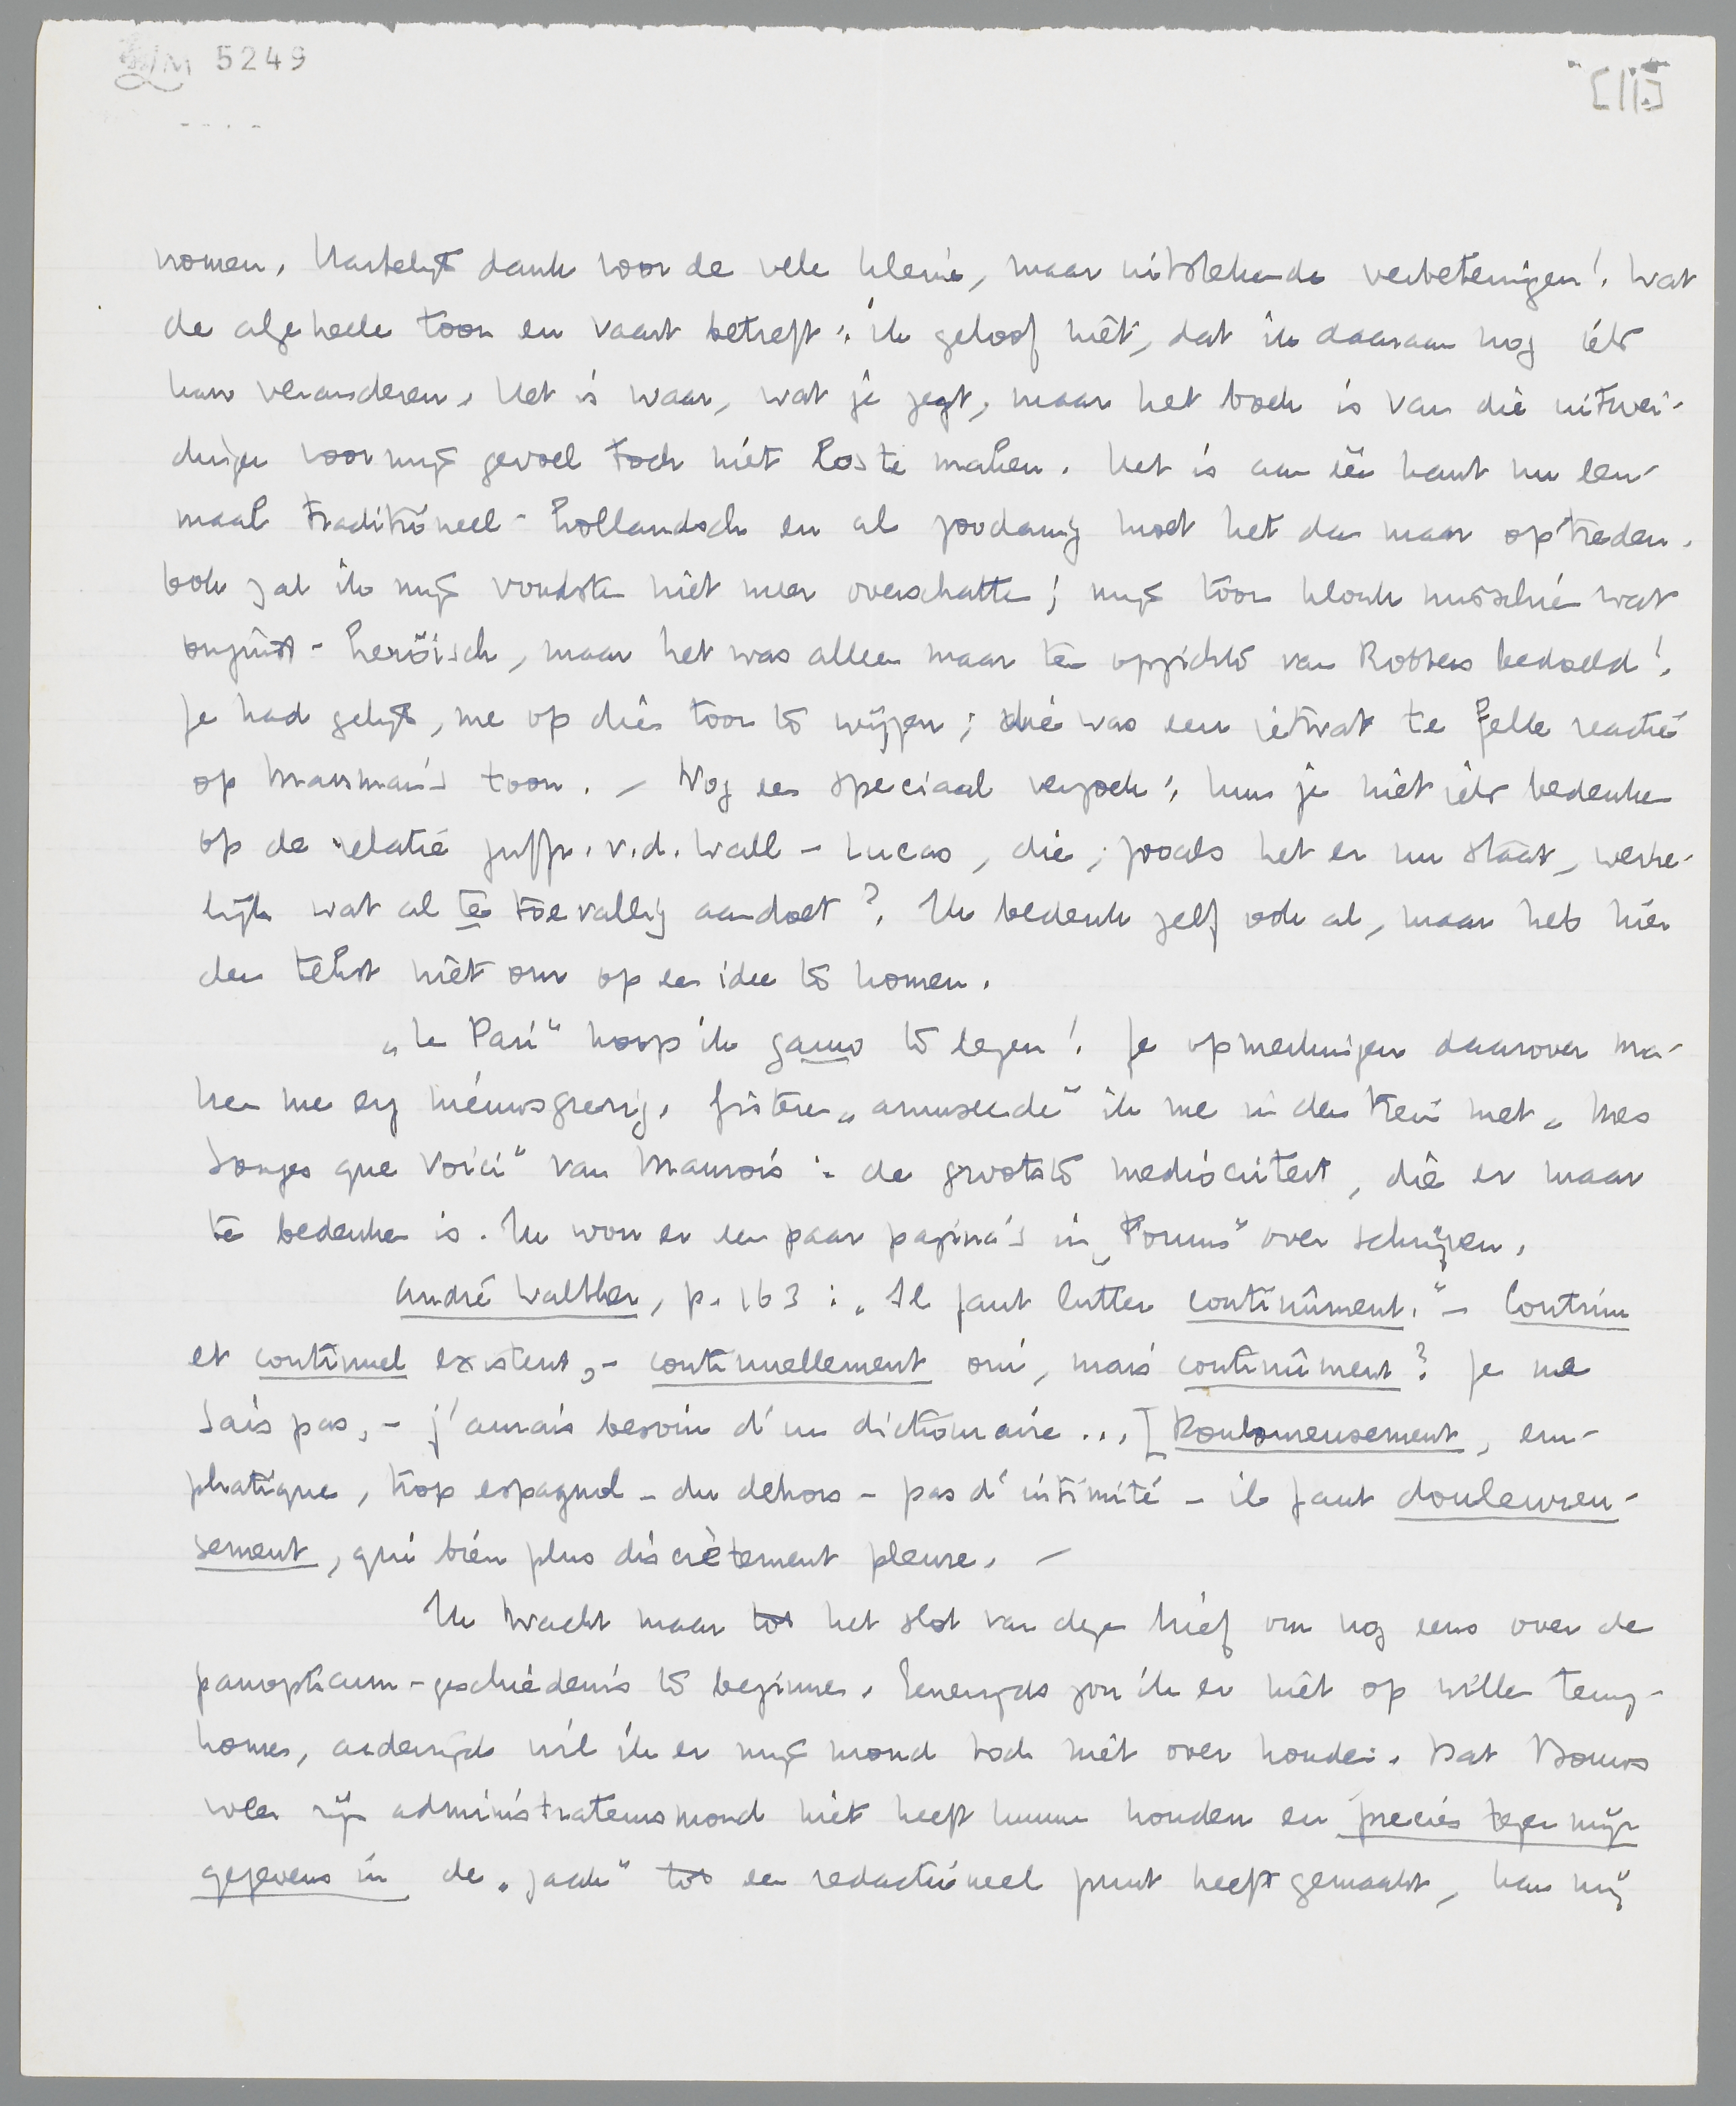 LM 5249
[II]
nomen. Hartelijk dank voor de vele kleine, maar uitstekende verbeteringen! Wat
de algeheele toon en vaart betreft: ik geloof niet, dat ik daaraan nog iets
kan veranderen. Het is waar, wat je zegt, maar het boek is van die uitwei-
dingen voor mijn gevoel toch niet los te maken. Het is aan één kant nu een-
maal traditioneel-hollandsch en als zoodanig moet het dan maar optreden.
Ook zal ik mijn vondsten niet meer overschatten; mijn toon klonk misschien wat
onjuist-heroïsch, maar het was alleen maar ten opzichte van Robbers bedoeld!
Je had gelijk, me op dien toon te wijzen; die was een ietwat te felle reactie
op Marsman's toon. – Nog een speciaal verzoek: kun je niet iets bedenken
op de relatie juffr. v.d. Wall – Lucas, die, zooals het er nu staat, werke-
lijk wat al te toevallig aandoet? Ik bedenk zelf ook al, maar heb hier
den tekst niet om op een idee te komen.
„Le Pari" hoop ik gauw te lezen! Je opmerkingen daarover ma-
ken me erg nieuwsgierig. Gisteren „amuseerde" ik me in den trein met „Mes
Songes que Voici" van Maurois: de grootste mediocriteit, die er maar
te bedenken is. Ik wou er een paar pagina's in „Forum" over schrijven.
André Walther, p. 163: „Il faut lutter continûment." – Continu
et continuel existent, – continuellement oui, mais continûment? Je ne
sais pas, – j'aurais besoin d'un dictionnaire... [Douloureusement, em-
phatique, trop espagnol – du dehors – pas d'intimité – il faut douleureu-
sement, qui bien plus discrètement pleure. –
Ik wacht maar tot het slot van dezen brief om nog eens over de
panopticum-geschiedenis te beginnen. Eenerzijds zou ik er niet op willen terug-
komen, anderzijds wil ik er mijn mond toch niet over houden. Dat Bouws
weer zijn administrateursmond niet heeft kunnen houden en precies tegen mijn
gegevens in de „zaak" tot een redactioneel punt heeft gemaakt, kan mij